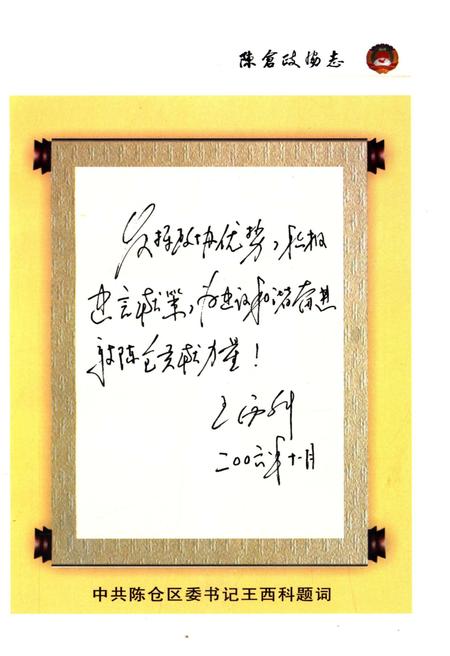 陈仓政协志
发挥政协优势,积极
建言献策,为建设和谐奋进
新陈仓贡献力量!
王西科
二〇〇六年十一月
中共陈仓区委书记王西科题词